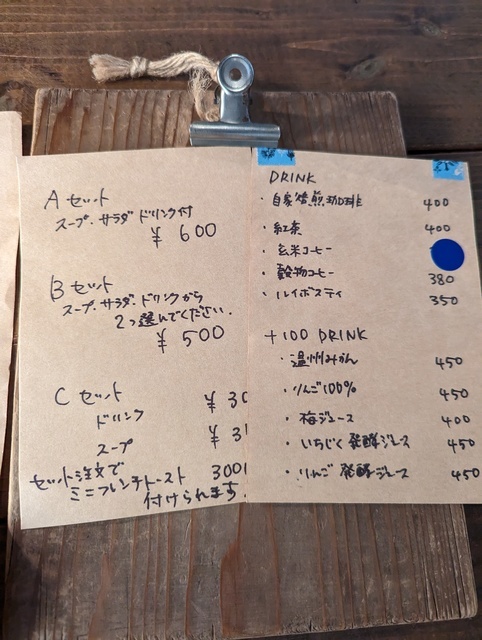 Aセット
スープ・サラダ ドリンク付
¥ 600
Bセット
スープ・サラダ・ドリンクから
2つ選んでください.
¥ 500
Cセット
ドリンク ¥ 30
スープ ¥ 3
セット注文で
ミニフレンチトースト 300
付けられます
DRINK
・自家焙煎珈琲 400
・紅茶 400
・玄米コーヒー
・穀物コーヒー 380
・ルイボスティ 350
+100 DRINK
・温州みかん 450
・りんご100% 450
・梅ジュース 400
・いちじく発酵ジュース 450
・りんご発酵ジュース 450